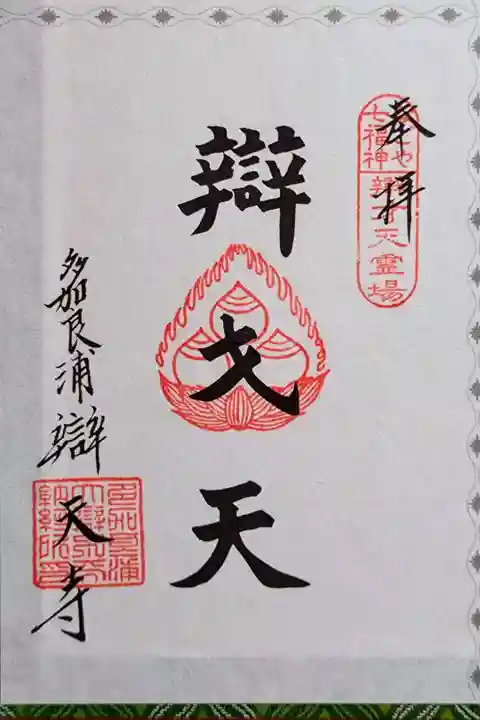 奉拝
七福神
辯才天霊場
辯才天
多加良浦辯天寺